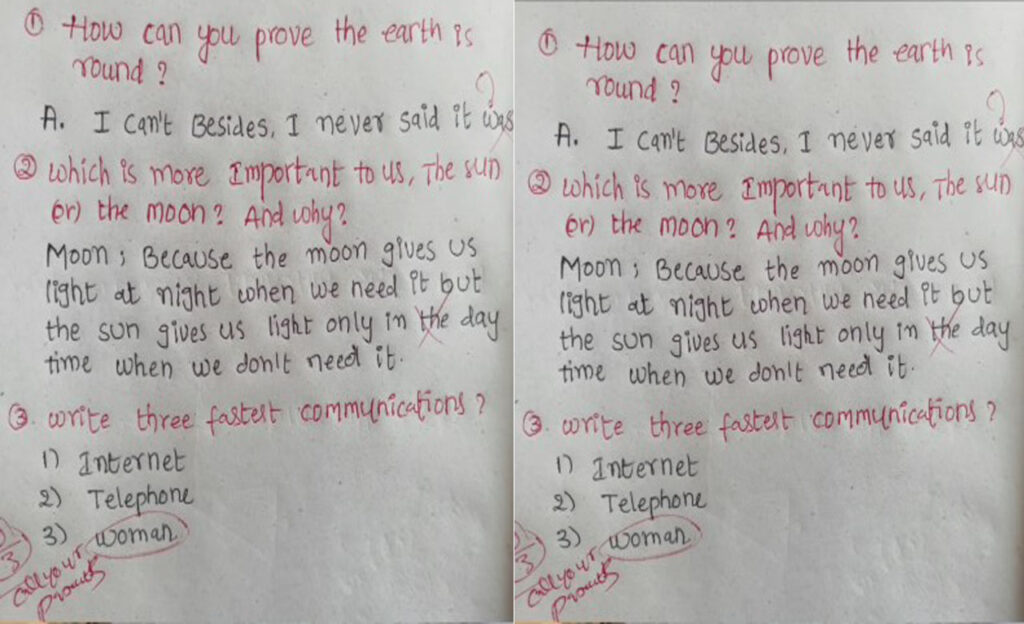 ① How can you prove the earth is
round ?
A. I can't Besides, I never said it was
② which is more Important to us, The sun
(or) the moon? And why?
Moon ; Because the moon gives us
light at night when we need it but
the sun gives us light only in the day
time when we don't need it.
③. write three fastest communications ?
1) Internet
2) Telephone
3) woman
3
call your
① How can you prove the earth is
round ?
A. I can't Besides, I never said it was
② which is more Important to us, The sun
(or) the moon? And why?
Moon ; Because the moon gives us
light at night when we need it but
the sun gives us light only in the day
time when we don't need it.
③. write three fastest communications ?
1) Internet
2) Telephone
3) woman
3
call your